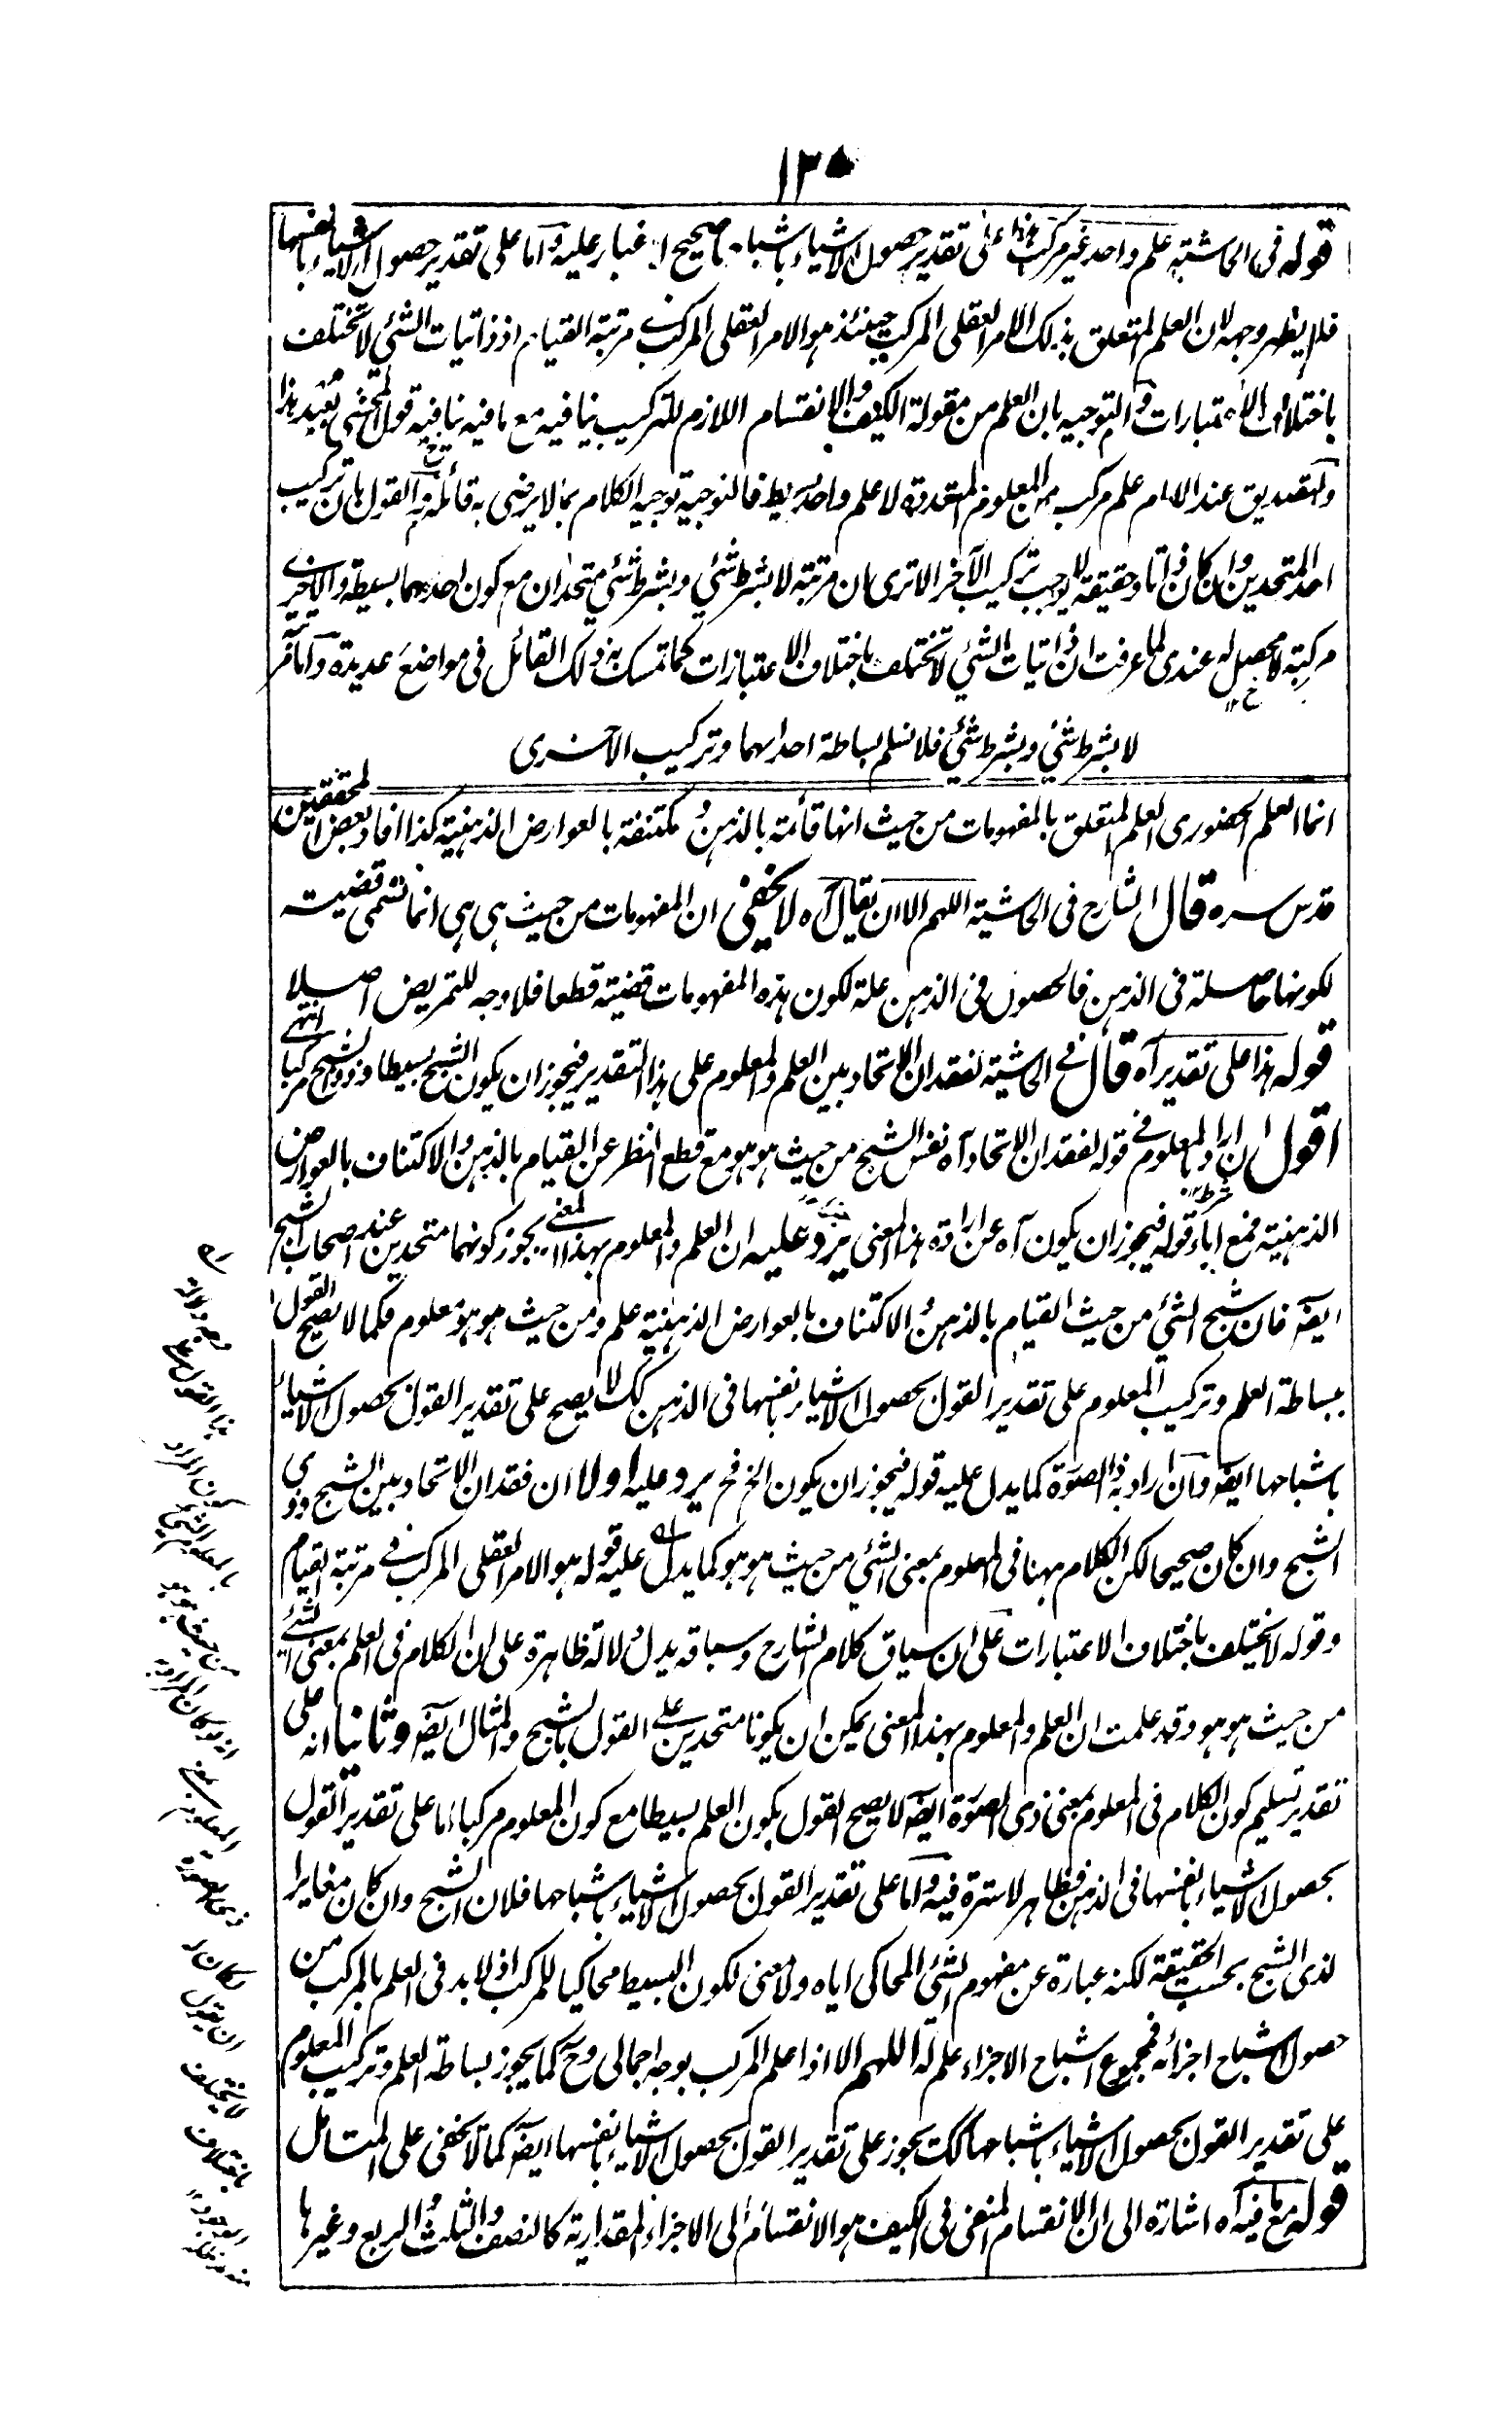 ١٣٥
قوله في الحاشية علم واحد غير مركب هذا على تقدير حصول الاشياء باشباحها صحيح لا غبار عليه واما على تقدير حصول الاشياء بانفسها
فلا يظهر وجهه لان العلم المتعلق بذلك الامر العقلي المركب حينئذ هو الامر العقلي المركب في مرتبة القيام اذ ذاتيات الشئ لا تختلف
باختلاف الاعتبارات والتوجيه بان العلم من مقولة الكيف والانقسام اللازم للتركيب ينافيه مع ما فيه ينافيه قول المحشي بعيد هذا
والتصديق عند الامام علم مركب من العلوم المتعددة لا علم واحد بسيط فالتوجيه توجيه الكلام بما لا يرضى به قائله ثم القول بان تركيب
احد المتحدين وان كان ذاتا وحقيقة لا يوجب تركيب الآخر الا ترى ان مرتبة لا بشرط شئ وبشرط شئ متحدان مع كون احدهما بسيطة والاخرى
مركبة لا محصل له عندي لما عرفت ان ذاتيات الشئ لا تختلف باختلاف الاعتبارات كما تمسك به ذلك القائل في مواضع عديدة واما مرتبة
لا بشرط شئ وبشرط شئ فلا نسلم بساطة احداهما وتركيب الاخرى
انما العلم الحضوري العلم المتعلق بالمفهومات من حيث انها قائمة بالذهن و مكتنفة بالعوارض الذهنية كذا افاد بعض المحققين
قدس سره قال الشارح في الحاشية اللهم الا ان يقال آه لا يخفى ان المفهومات من حيث هي هي انما تسمى قضية
لكونها حاصلة في الذهن فالحصول في الذهن علة لكون هذه المفهومات قضية قطعا فلا وجه للتمريض اصلا انتهى
قوله هذا على تقدير آه قال في الحاشية لفقدان الاتحاد بين العلم والمعلوم على هذا التقدير فيجوز ان يكون الشبح بسيطا وذو الشبح مركبا
اقول ان اراد بالمعلوم في قوله لفقدان الاتحاد آه نفس الشبح من حيث هو هو مع قطع النظر عن القيام بالذهن والاكتناف بالعوارض
الذهنية فمع اباء قوله فيجوز ان يكون آه عن ارادة هذا المعنى يرد عليه ان العلم والمعلوم بهذا المعنى يجوز كونهما متحدين عند اصحاب الشبح
ايضه فان شبح الشئ من حيث القيام بالذهن والاكتناف بالعوارض الذهنية علم ومن حيث هو هو معلوم فكما لا يصح القول
ببساطة العلم وتركيب المعلوم على تقدير القول بحصول الاشياء بانفسها في الذهن كك لا يصح على تقدير القول بحصول الاشياء
باشباحها ايضه وان اراد به ذا الصورة كما يدل عليه قوله فيجوز ان يكون الخ فح يرد عليه اولا ان فقدان الاتحاد بين الشبح وذي
الشبح وان كان صحيحا لكن الكلام ههنا في المعلوم بمعنى الشئ من حيث هو هو كما يدل عليه قوله هو الامر العقلي المركب في مرتبة القيام
وقوله لا يختلف باختلاف الاعتبارات على ان سياق كلام الشارح وسباقه يدل دلالة ظاهرة على ان الكلام في العلم بمعنى الشئ
من حيث هو هو وقد علمت ان العلم والمعلوم بهذا المعنى يمكن ان يكونا متحدين على القول بالشبح والمثال ايضه وثانيا انه على
تقدير تسليم كون الكلام في المعلوم بمعنى ذي الصورة ايضه لا يصح القول بكون العلم بسيطا مع كون المعلوم مركبا اما على تقدير القول
بحصول الاشياء بانفسها في الذهن فظاهر لا سترة فيه واما على تقدير القول بحصول الاشياء باشباحها فلان الشبح وان كان مغايرا
لذي الشبح بحسب الحقيقة لكنه عبارة عن مفهوم الشئ المحاكى اياه ولا معنى لكون البسيط محاكيا للمركب اذ لا بد في العلم بالمركب من
حصول اشباح اجزائه فمجموع اشباح الاجزاء علم له اللهم الا اذا علم المركب بوجه اجمالي وح كما يجوز بساطة العلم وتركيب المعلوم
على تقدير القول بحصول الاشياء باشباحها كك يجوز على تقدير القول بحصول الاشياء بانفسها ايضه كما لا يخفى على المتامل
قوله مع ما فيه آه اشارة الى ان الانقسام المنفي في الكيف هو الانقسام الى الاجزاء المقدارية كالنصف والثلث والربع وغيرها